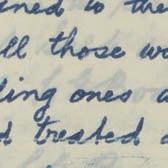 ned to the
ll those wo
ling ones a
d treated a